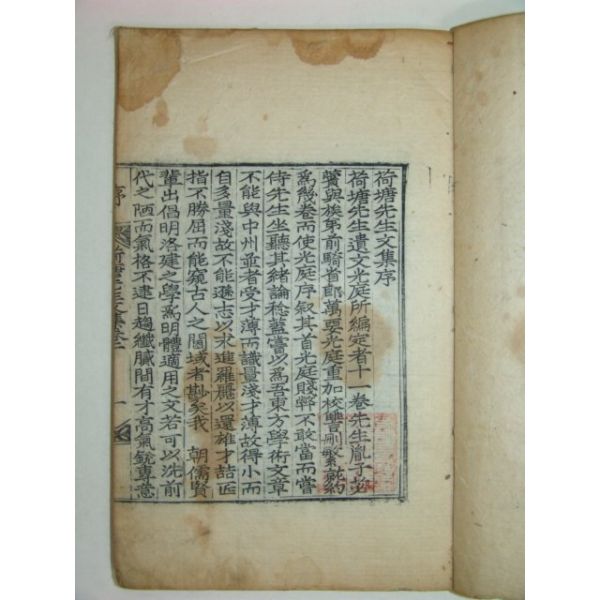 荷塘先生文集序
荷塘先生遺文光庭所編定者十一卷先生胤子苾
與族弟前騎省郞萬要光庭重加校讐刪繁就約
爲幾卷而使光庭序叙其首光庭賤弊不敢當而嘗
侍先生坐聽其緖論稔藍嘗以爲吾東方學術文章
不能與中州並者受才薄而識量淺才薄故得小而
自多量淺故不能遜志以求進羅麗以還雄才喆匠
指不勝屈而能窺古人之閫域者尠矣我 朝儒賢
輩出倡明洛建之學爲明體適用之文若可以洗前
代之陋而氣格不逮日趨纖臟間有才高氣銳專意
序 荷塘先生文集卷 一